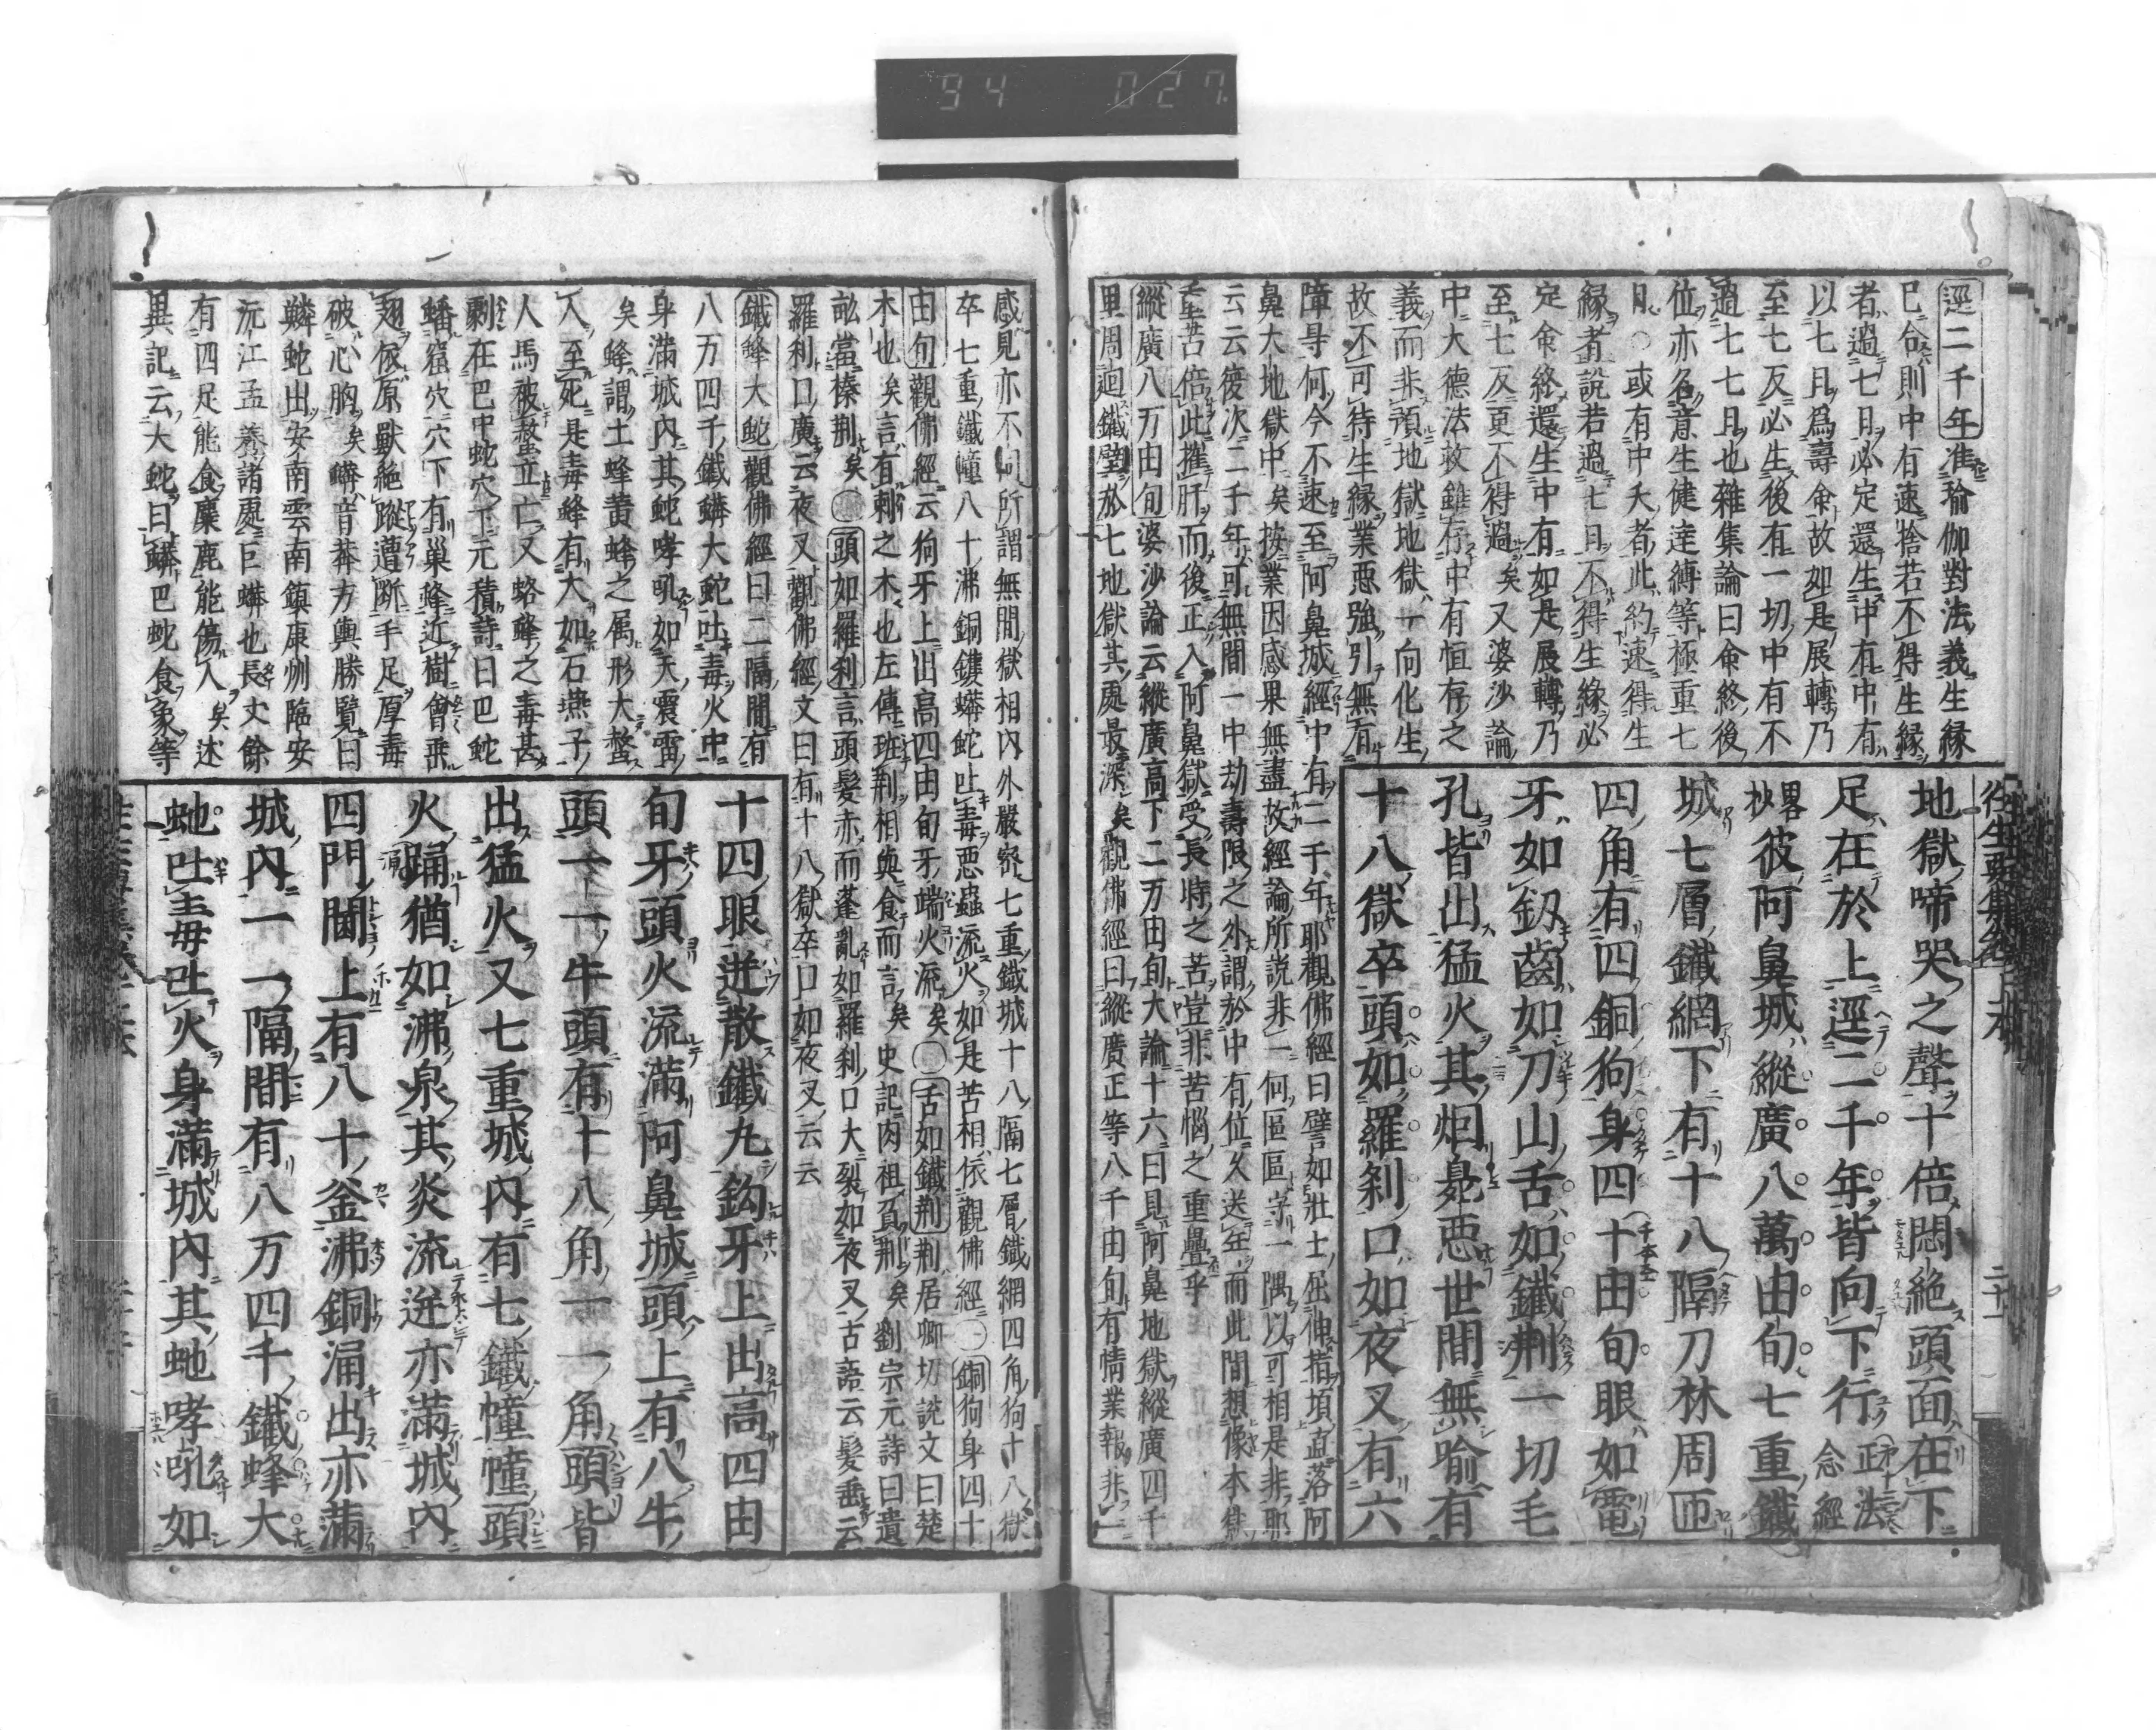 94 027
逕二千年准瑜伽對法義生縁
已台則中有速捨若不得生縁
者過七日必定還生中有中有
以七日爲壽命故如是展轉乃
至七反必生後有一切中有不
過七七日也雜集論曰命終後
位亦名意生健達縛等極重七
日○或有中夭者此約速得生
縁者説若過七日不得生縁必
定命終還生中有如是展轉乃
至七反更不得過矣又婆沙論
中大德法救雖存中有恒存之
義而非預地獄地獄一向化生
故不可待生縁業惡強引無有
障㝵何今不速至阿鼻城經中有二千年耶觀佛經曰譬如壯士屈伸指項直落阿
鼻大地獄中矣按業因感果無盡故經論所説非一何區區守一隅以可相是非耶
云云後次二千年可無間一中劫壽限之外謂於中有位久送年而此間想像本
重苦倍此摧肝而後正入阿鼻獄受長時之苦豈非苦惱之重疊乎
縱廣八万由旬婆沙論云縱廣高下二万由旬大論十六曰見阿鼻地獄縱廣四千
里周迴鐵壁於七地獄其處最深矣觀佛經曰縱廣正等八千由旬有情業報非一
往生要集卷上本
二十一
地獄啼哭之聲十倍悶絶頭面在下
足在於上逕二千年皆向下行正法念經
畧抄彼阿鼻城縱廣八萬由旬七重鐵
城七層鐵網下有十八隔刀林周匝
四角有四銅狗身四十由旬眼如電
牙如釼齒如刀山舌如鐵荆一切毛
孔皆出猛火其烟臰惡世間無喻有
十八獄卒頭如羅刹口如夜叉有六
感見亦不同所謂無間獄相内外嚴密七重鐵城十八隔七層鐵網四角狗十八獄
卒七重鐵幢八十沸銅鑊蟒蛇吐毒惡蟲流火如是苦相依觀佛經○銅狗身四十
由旬觀佛經云狗牙上出高四由旬牙端火流矣○舌如鐵荆荆居卿切説文曰楚
木也矣言有刺之木也左傳班荆相與食而言矣史記肉袒負荆矣劉宗元詩曰遺
訟當榛荆矣○頭如羅刹言頭髮赤而蓬亂如羅刹口大裂如夜叉古語云髮垂云
羅刹口廣云夜叉觀佛經文曰有十八獄卒口如夜叉云云
鐵蜂大蛇觀佛經曰二隔間有
八万四千鐵蟒大蛇吐毒火中
身滿城内其蛇哮吼如天震雷
矣蜂謂土蜂黄蜂之属形大螫
人至死是毒蜂有大如石燕子
人馬被螫立亡又蛒蜂之毒甚
剰在巴中蛇穴下元積詩曰巴蛇
蟠窟穴穴下有巢蜂近樹曾垂
翅依原獸絶蹤遭斷手足厚毒
破心胸矣蟒音莽方輿勝覽曰
鱗蛇出安南雲南鎮康州臨安
沅江孟養諸處巨蟒也長丈餘
有四足能食麋鹿能傷人矣述
異記云大蛇曰蟒巴蛇食象等
十四眼迸散鐵丸鈎牙上出高四由
旬牙頭火流滿阿鼻城頭上有八牛
頭一一牛頭有十八角一一角頭皆
出猛火又七重城内有七鐵幢幢頭
火踊猶如沸泉其炎流迸亦滿城内
四門閫上有八十釜沸銅涌出亦滿
城内一一隔間有八万四千鐵蜂大
虵吐毒吐火身滿城内其虵哮吼如